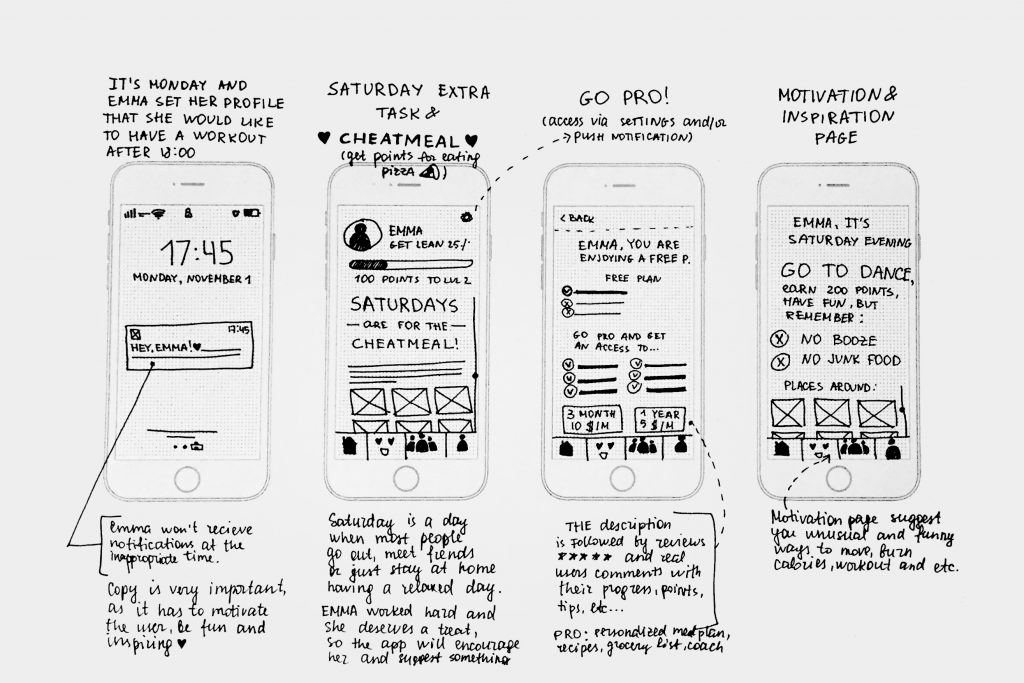 IT'S MONDAY AND
EMMA SET HER PROFILE
THAT SHE WOULD LIKE
TO HAVE A WORKOUT
AFTER 18:00
17:45
MONDAY, NOVEMBER 1
17:45
HEY, EMMA! ♥
Emma won't recieve
notifications at the
inappropriate time.
Copy is very important,
as it has to motivate
the user, be fun and
inspiring ♥
SATURDAY EXTRA
TASK &
♥ CHEATMEAL ♥
(get points for eating
pizza)
EMMA
GET LEAN 25/.
100 POINTS TO LVL 2
SATURDAYS
— ARE FOR THE —
CHEATMEAL!
Saturday is a day
when most people
go out, meet friends
or just stay at home
having a relaxed day.
EMMA worked hard and
she deserves a treat,
so the app will encourage
her and suggest something
GO PRO!
(access via settings and/or
→ PUSH NOTIFICATION)
< BACK
EMMA, YOU ARE
ENJOYING A FREE P.
FREE PLAN
GO PRO AND GET
AN ACCESS TO...
3 MONTH
10 $/M
1 YEAR
5 $/M
THE description
is followed by reviews
★★★★★ and real
users comments with
their progress, points,
tips, etc...
PRO: personalized mealplan,
recipes, grocery list, coach
MOTIVATION &
INSPIRATION
PAGE
EMMA, IT'S
SATURDAY EVENING
GO TO DANCE,
EARN 200 POINTS,
HAVE FUN, BUT
REMEMBER:
NO BOOZE
NO JUNK FOOD
PLACES AROUND:
Motivation page suggest
you unusual and funny
ways to move, burn
calories, workout and etc.